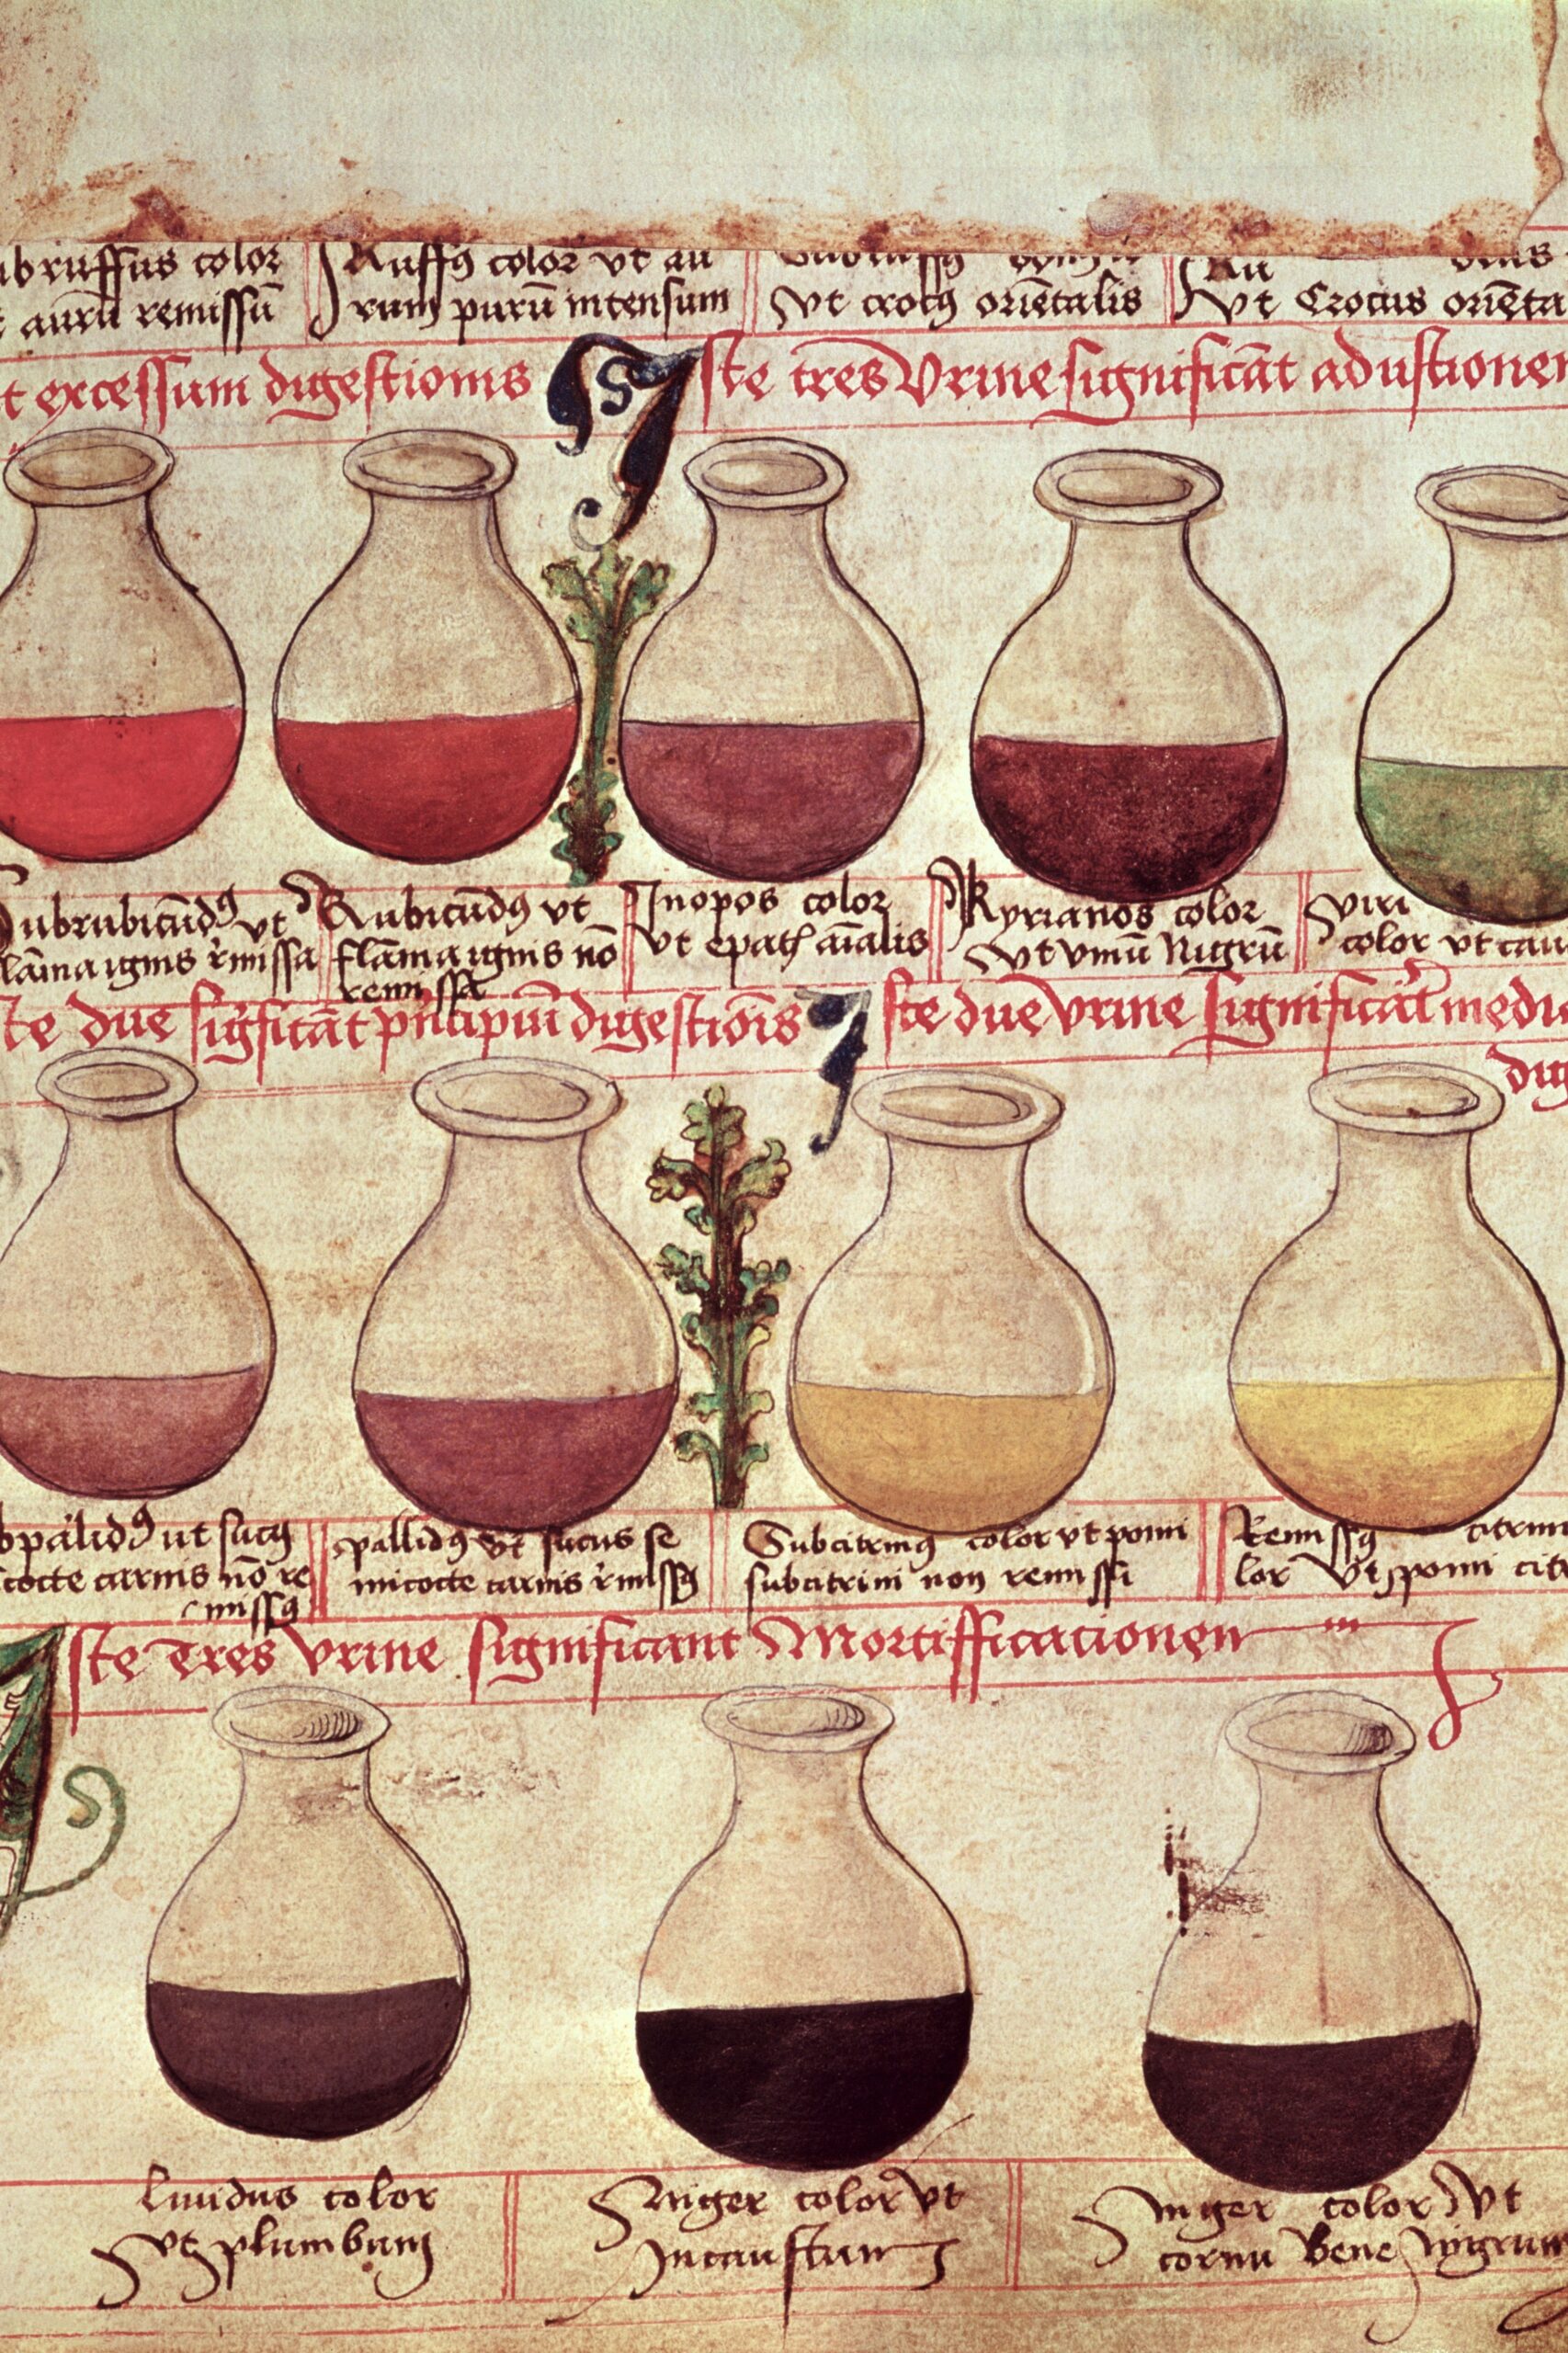 ubruffus color
aurū remissū
Ruffꝯ color vt au
rum purū intensum
vt crocꝯ oriētalis
Ru
vt Crocus oriēta
t excessum digestionis
Iste tres Vrine significāt adustionem
Subrubicūdꝯ vt
lāma ignis r̄missa
Rubicūdꝯ vt
flāma ignis nō
remissa
Inopos color
vt epatꝭ aīalis
Kyrianos color
vt vinū Nigrū
viri
color vt cau
te due siḡficāt pncipiū digestiōis
Iste due vrine significāt mediā
dig
bpālidꝯ ut sucꝯ
cocte carnis nō re
missꝯ
pallidꝯ vt sucus se
micocte carnis r̄missꝯ
Subcitrinꝯ color vt pomi
subcitrini non remissi
Remissꝯ citrinꝯ
lor vt pomi citr
Iste Tres vrine significant Mortifficacionem
Liuidus color
vt plumbum
Niger color vt
Incaustum
Niger color vt
cornu Bene Nigrum